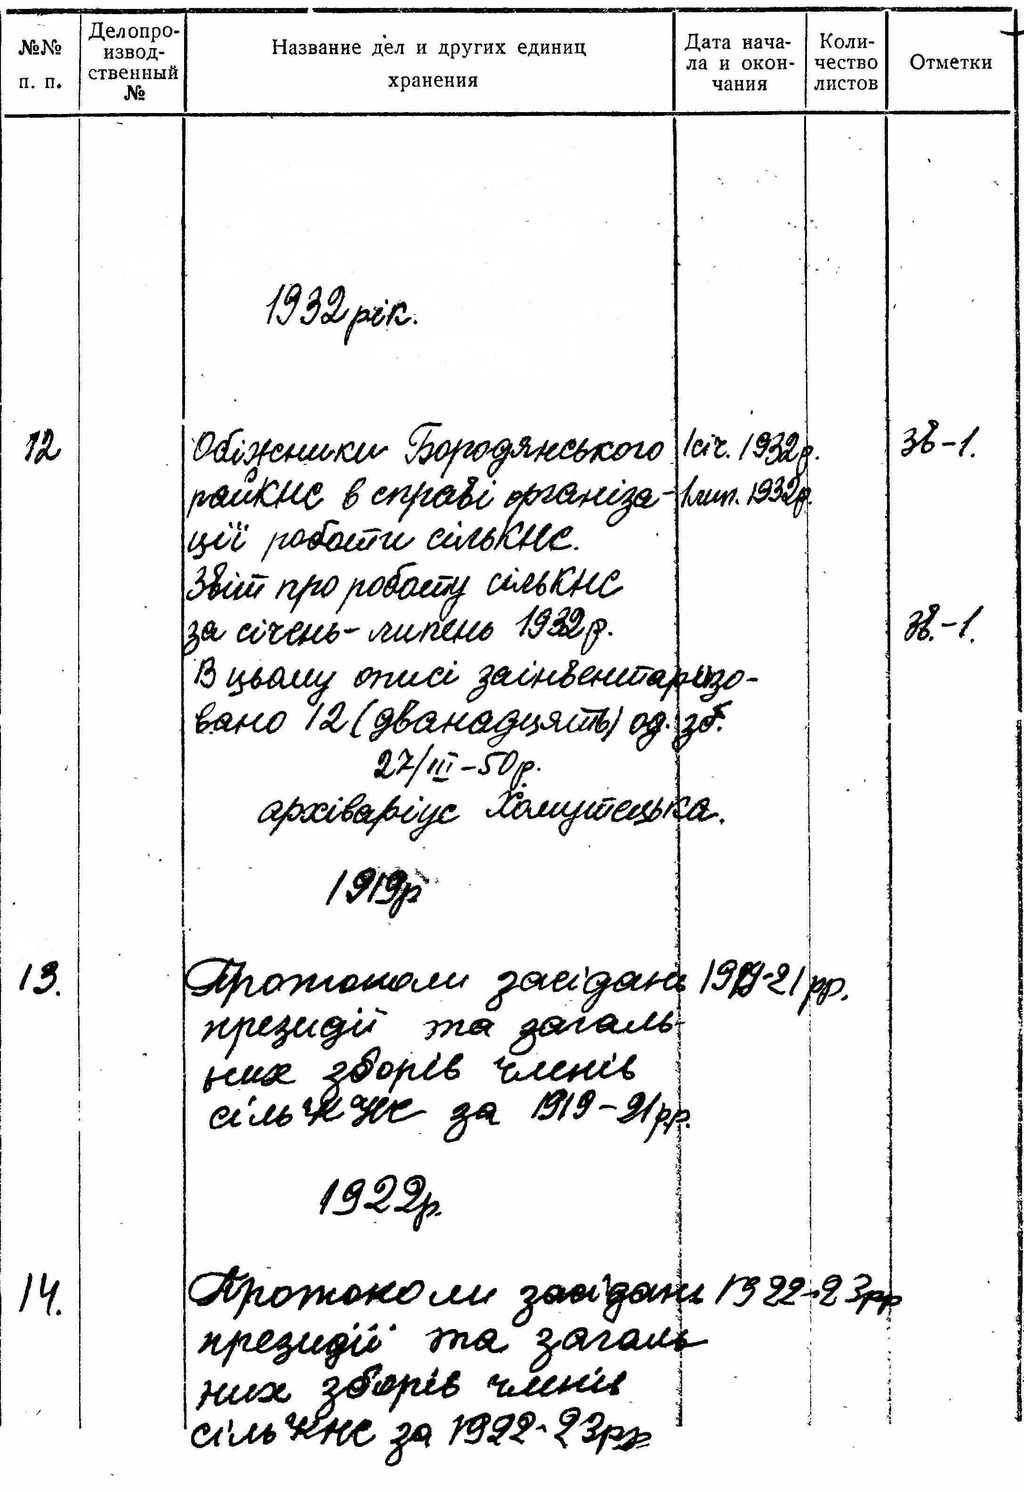 №№ п. п.
Делопроизводственный №
Название дел и других единиц хранения
Дата начала и окончания
Количество листов
Отметки
1932 рік.
12 Обіжники Бородянського 1 січ. 1932 р. зв-1.
райКНС в справі організа- 1 лип. 1932 р.
ції роботи сількНС.
Звіт про роботу сількНС
за січень-липень 1932 р. зв.-1.
В цьому описі заінвентаризо-
вано 12 (дванадцять) од. зб.
27/III-50 р.
архіваріус Хомутецька.
1919 р
13. Протоколи засідань 1919-21 рр.
президії та загаль-
них зборів членів
сільКНС за 1919-21 рр.
1922 р.
14. Протоколи засідань 1922-23 рр
президії та загаль
них зборів членів
сільКНС за 1922-23 рр